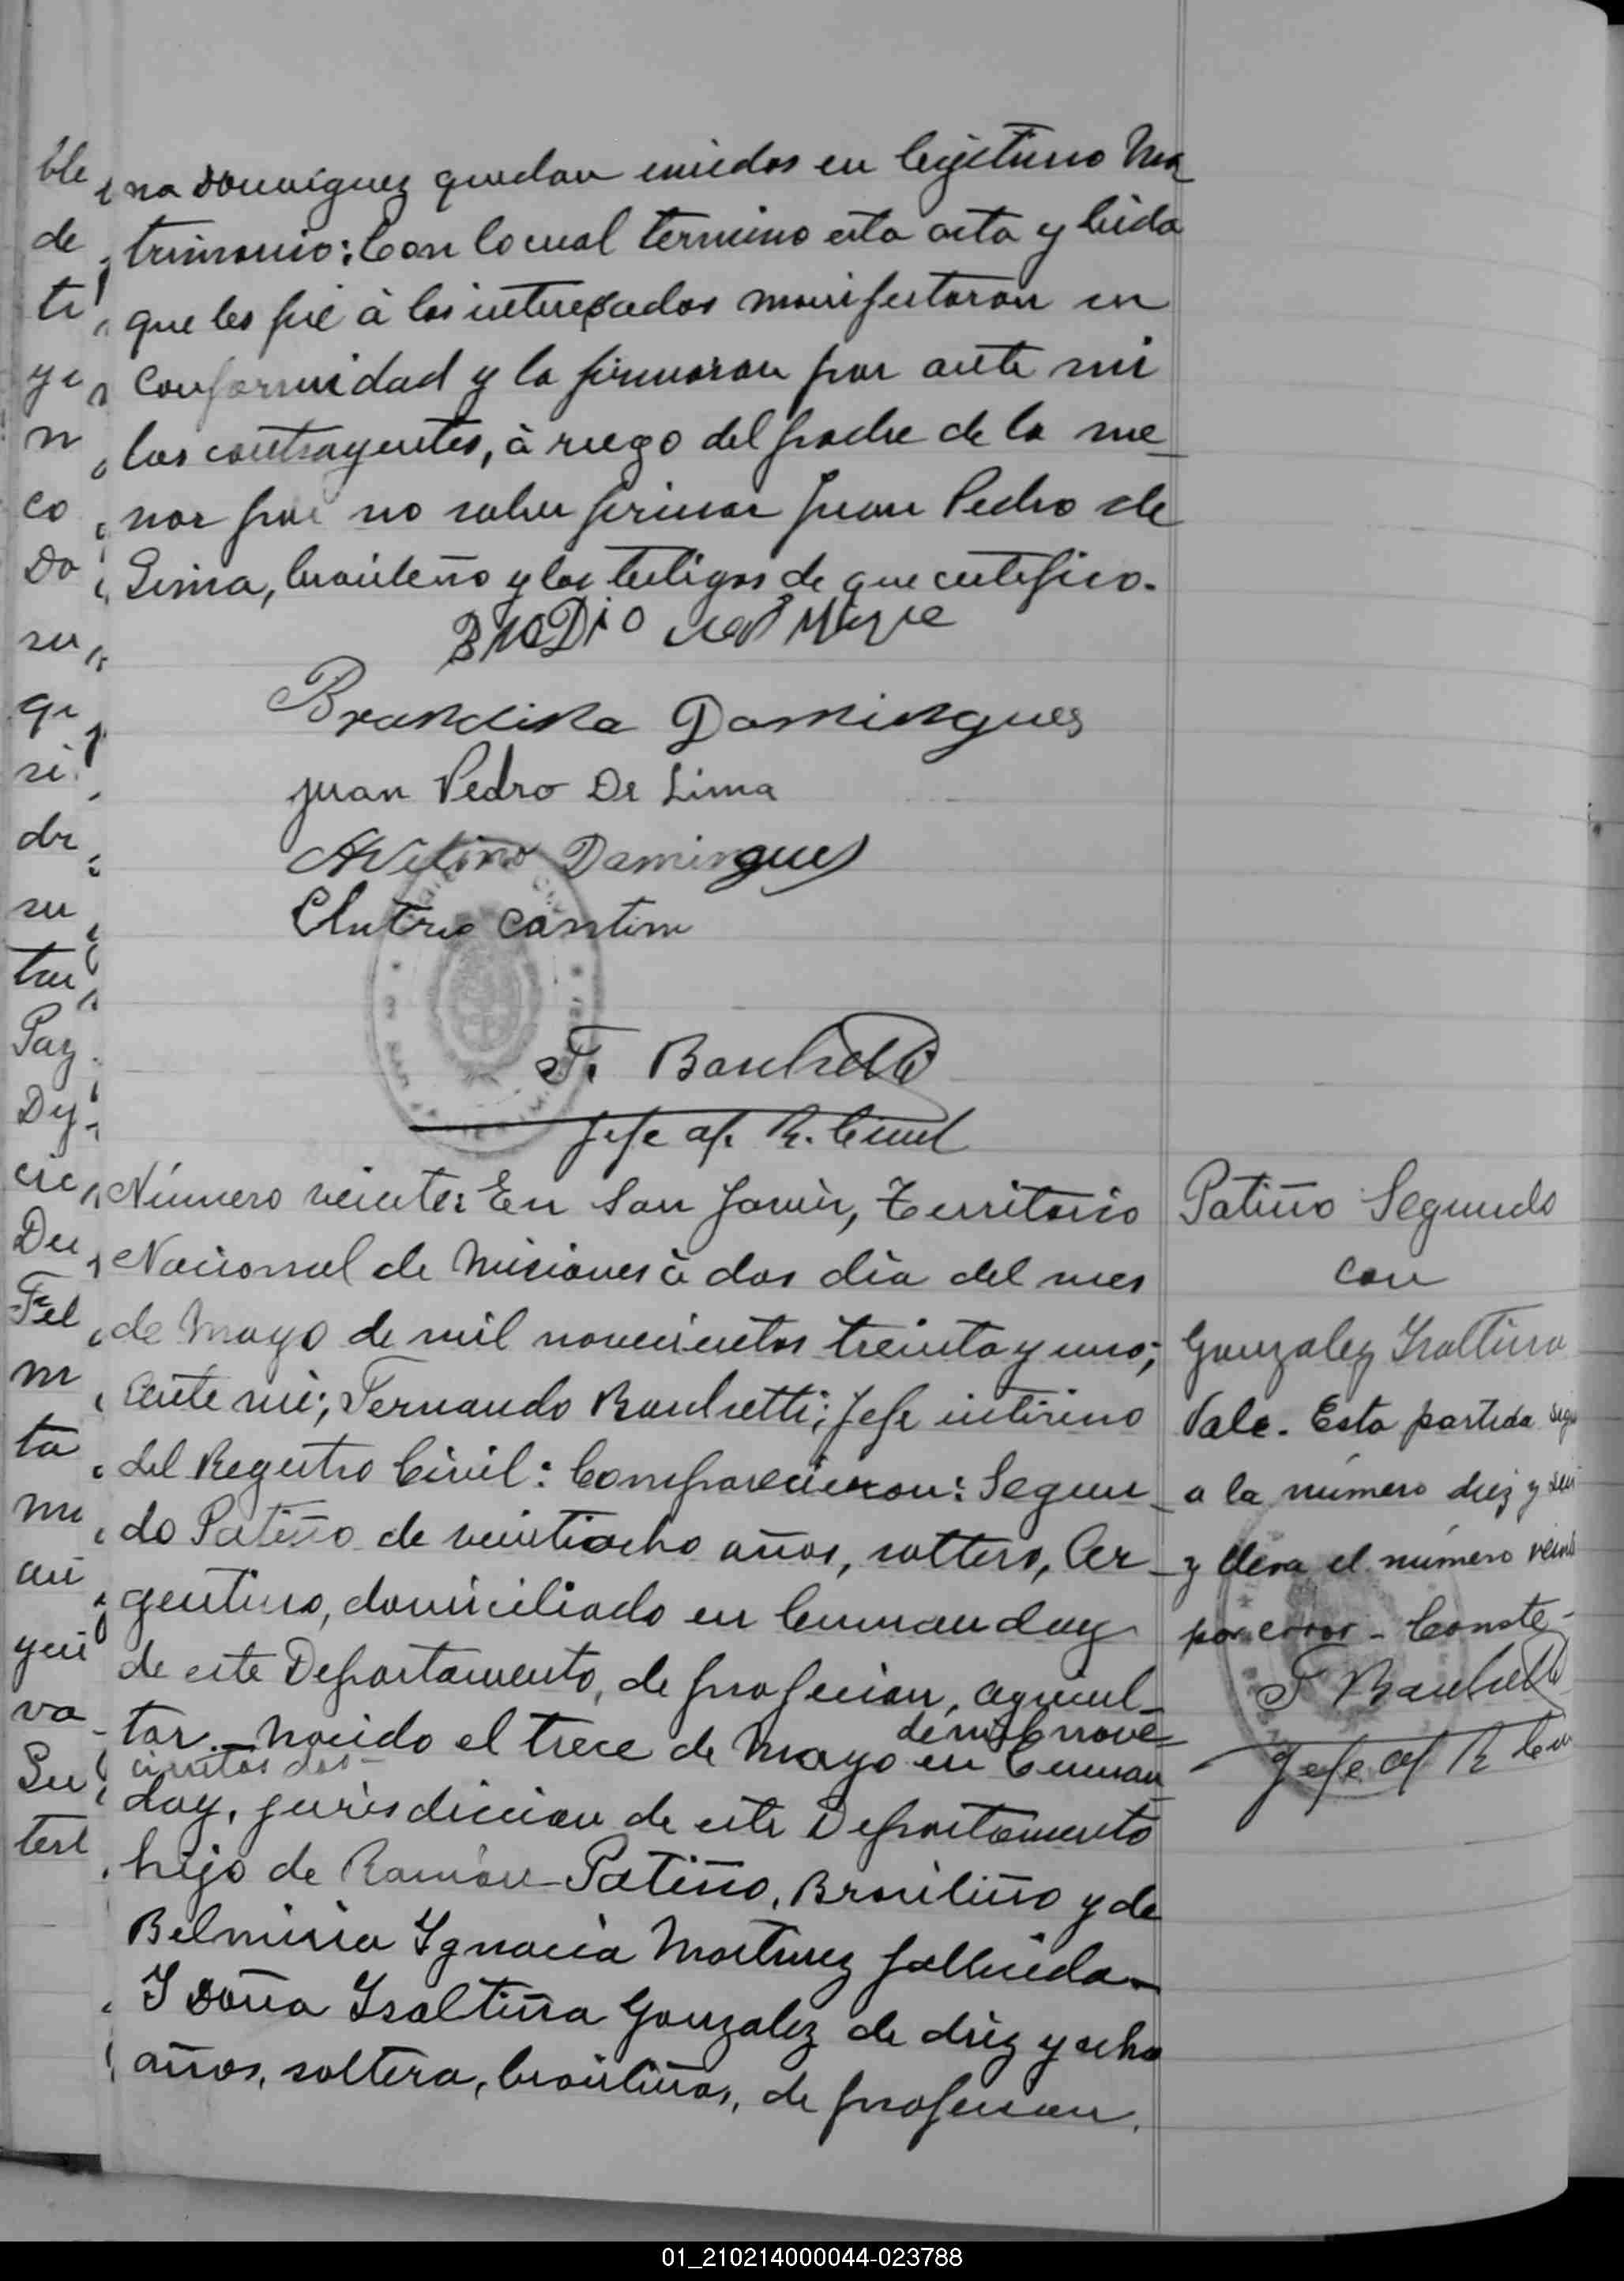 na Dominguez quedan unidos en legitimo Ma
trimonio: Con lo cual termino esta acta y leida
que les fué à los interesados manifestaron en
Conformidad y la firmaron por ante mi
los contrayentes, à ruego del padre de la me_
nor por no saber firmar Juan Pedro de
Lima, brasileño y los testigos de que certifico.
Brandina Domingues
juan Pedro De Lima
Avelino Domingues
Cantero
F. Bauchetti
Jefe of. R. Civil
Número veinte: En San Javier, Territorio
Nacional de Misiones à dos dia del mes
de Mayo de mil novecientos treinta y uno;
Ante mi; Fernando Bauchetti; Jefe interino
del Registro Civil: Comparecieron: Segun_
do Patiño de veintiocho años, soltero, Ar_
gentino, domiciliado en Cumanday
de este Departamento, de profesion, agricul_
tor. nacido el trece de Mayo de mil nove_
cientos dos_ en Cuman_
day, jurisdiccion de este Departamento
hijo de Ramón Patiño, Brasiliño y de
Belmira Ignacia Martinez fallecida_
Y Doña Isaltina Gonzalez de diez y ocho
años, soltera, brasiliña, de profesion,
Patiño Segundo
con
Gonzalez Isaltina
Vale. Esta partida sigue
a la número diez y seis
y lleva el número veinte
por error - Conste-
F Bauchetti
Jefe of R Civil
ble
de
ti
ye
n
co
Do
su
qu
si
dr
su
tar
Paz
Dy
cie
De
Fel
m
ta
mi
yen
va
Su
test
01_210214000044-023788